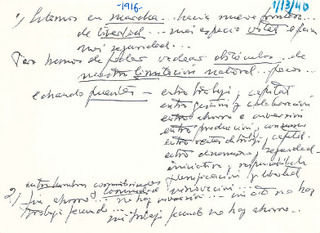 -1916-
1/13/40
1) Estamos en marcha... hacia nuevo
de libertad... más espacio vital
más seguridad...
Para hemos de poder vadear obstáculos... de
nuestra limitación natural... pero...
echando puentes - entre trabajo y capital
entre gestión y colaboración
entre ahorro e inversión
entre producción y consumo
entre rentas de trabajo y capital
entre
iniciativa y responsabilidad
planificación y libertad
entre hombres y comunidad
2) sin ahorro... no hay inversión... sin ésta no hay
trabajo fecundo... sin trabajo fecundo no hay ahorro...